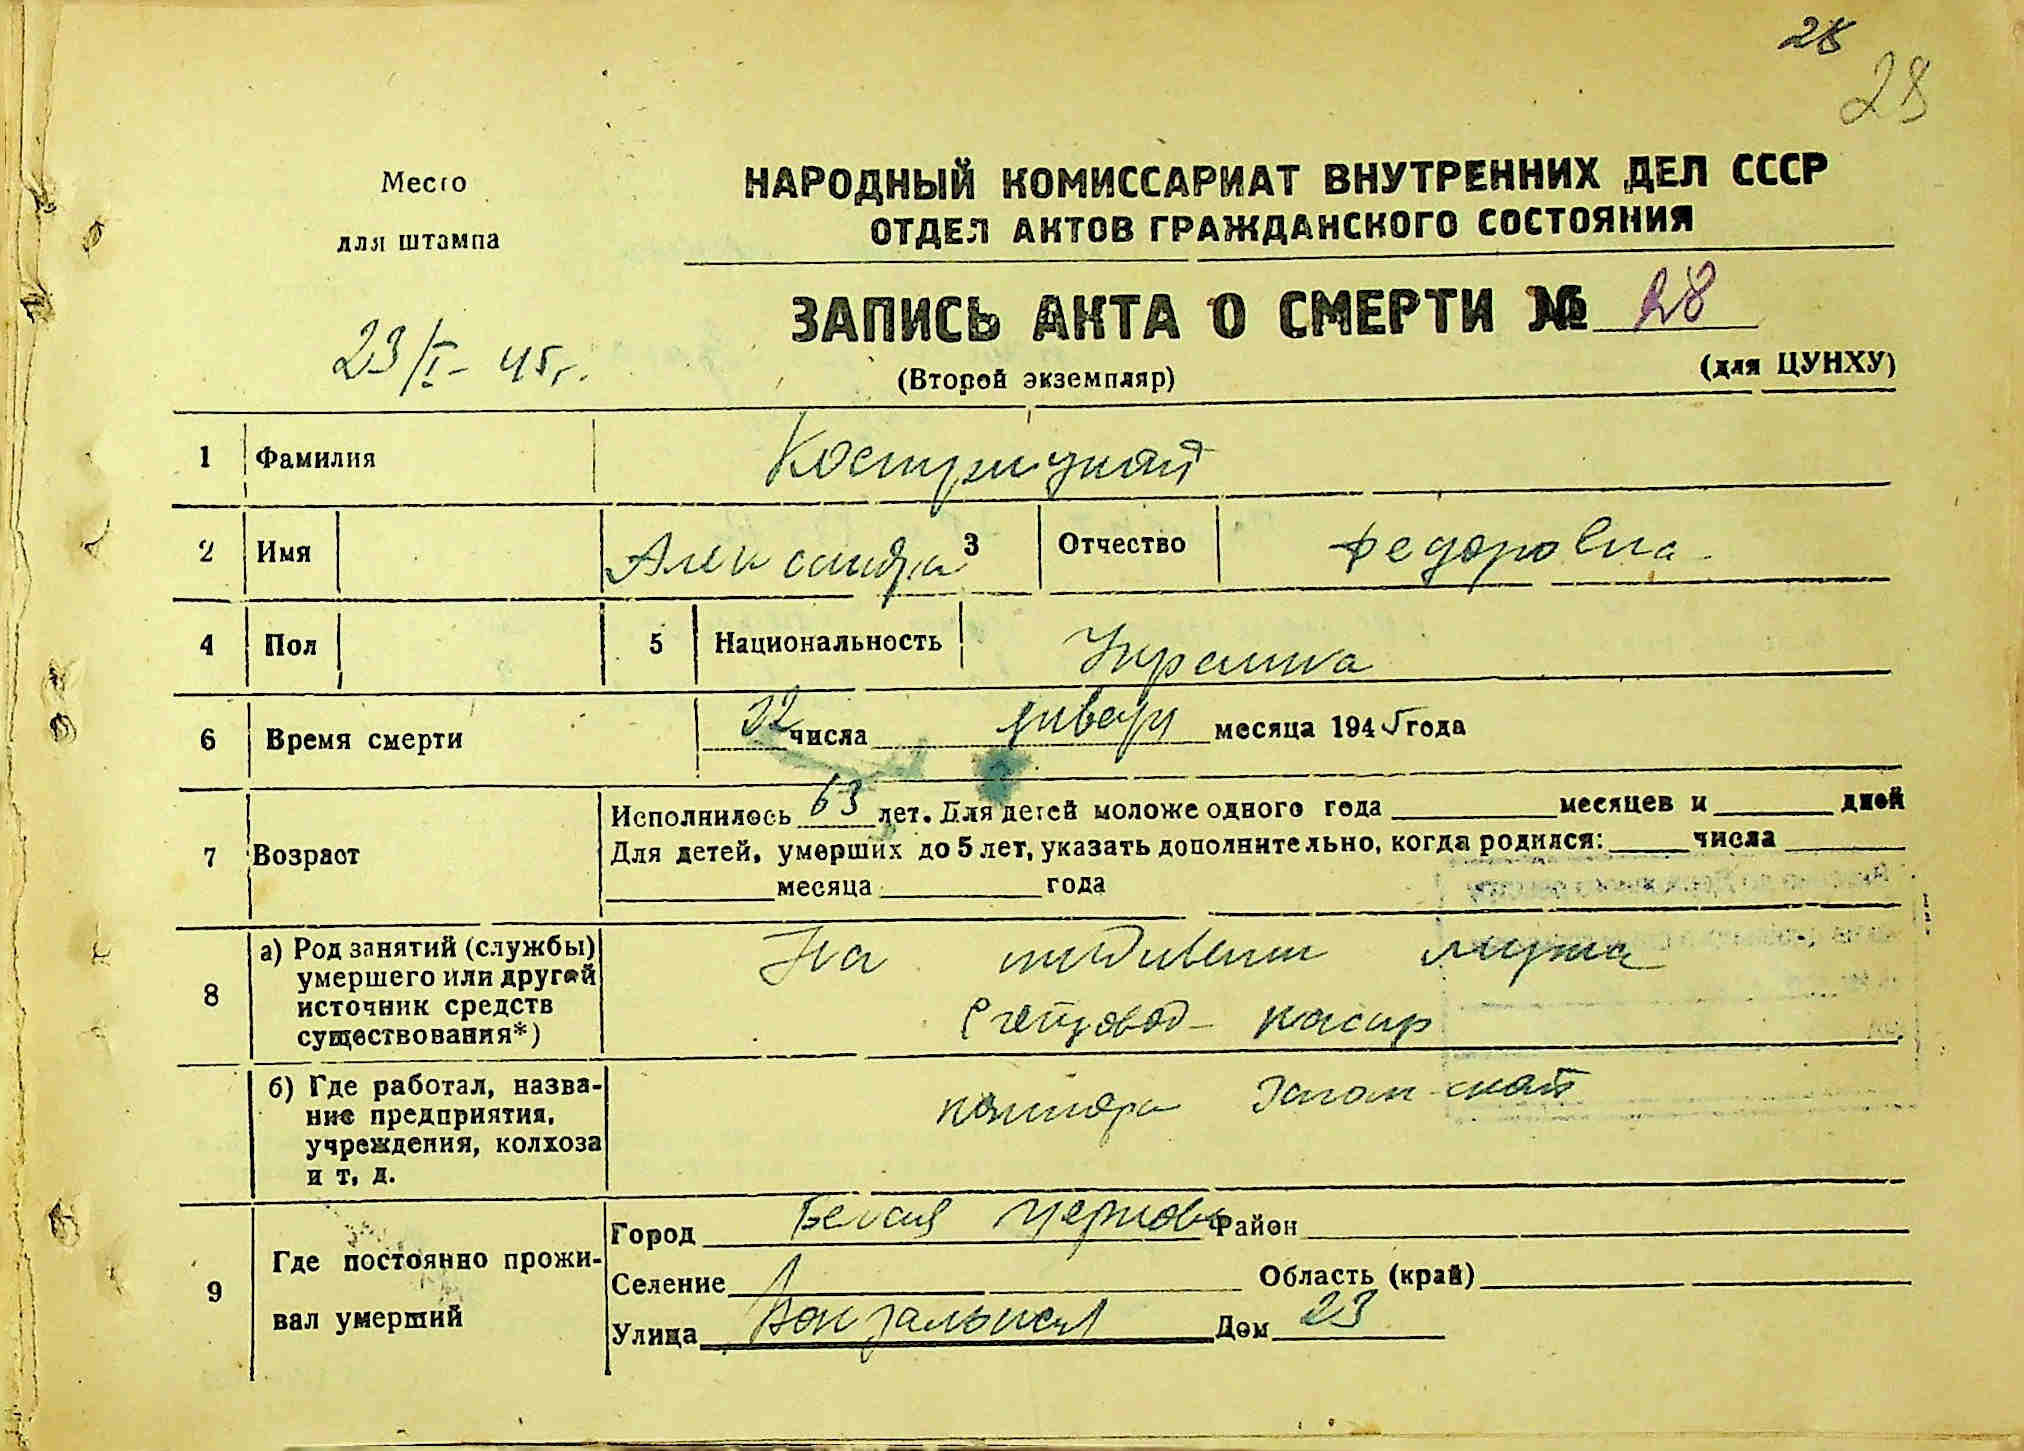 28
28
Место
для штампа
НАРОДНЫЙ КОМИССАРИАТ ВНУТРЕННИХ ДЕЛ СССР
ОТДЕЛ АКТОВ ГРАЖДАНСКОГО СОСТОЯНИЯ
ЗАПИСЬ АКТА О СМЕРТИ № 28
23/I- 45г.
(Второй экземпляр)
(для ЦУНХУ)
1 Фамилия Кострицкая
2 Имя Александра 3 Отчество Федоровна
4 Пол 5 Национальность Украинка
6 Время смерти 22 числа января месяца 1945 года
7 Возраст
Исполнилось 63 лет. Для детей моложе одного года месяцев и дней
Для детей, умерших до 5 лет, указать дополнительно, когда родился: числа
месяца года
8 а) Род занятий (службы)
умершего или другой
источник средств
существования*)
На иждивении мужа
Счетовод- касир
б) Где работал, назва-
ние предприятия,
учреждения, колхоза
и т. д.
контора
9 Где постоянно прожи-
вал умерший
Город Белая Церковь Район
Селение Область (край)
Улица Вокзальная Дом 23